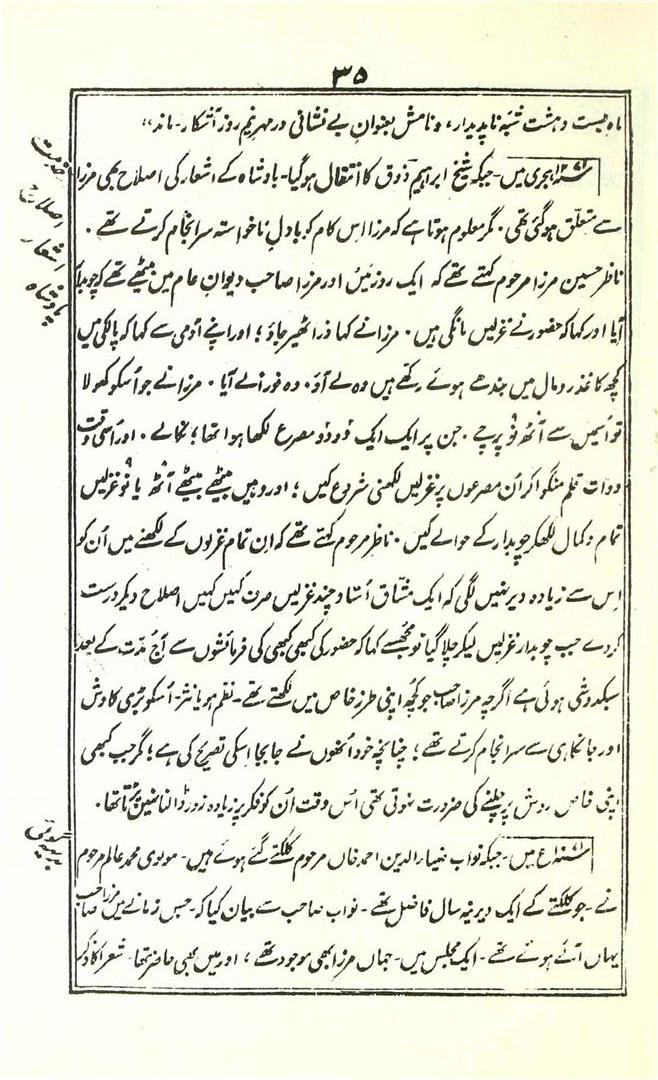 ۳۵
ماہ بیست و ہشت شبہ ناپدیدار، و نامش بعنوانِ بے نشانی در مہرِ نیم روز آشکار - ماند"
۱۲۷۱ ہجری میں - جبکہ شیخ ابراہیم ذوق کا انتقال ہوگیا - بادشاہ کے اشعار کی اصلاح بھی مرزا
سے متعلق ہوگئی تھی ۰ مگر معلوم ہوتا ہے کہ مرزا اس کام کو بادلِ ناخواستہ سرانجام کرتے تھے ۰
ناظر حسین مرزا مرحوم کہتے تھے کہ ایک روز میں اور مرزا صاحب دیوانِ عام میں بیٹھے تھے کہ چوبدار
آیا اور کہا کہ حضور نے غزلیں مانگی ہیں ۰ مرزا نے کہا ذرا ٹھیر جاؤ؛ اور اپنے آدمی سے کہا کہ پالکی میں
کچھ کاغذ رومال میں بندھے ہوئے رکھے ہیں وہ لے آؤ ۰ وہ فوراً لے آیا ۰ مرزا نے جو اُسکو کھولا
تو اُسمیں سے آٹھ نو پرچے - جن پر ایک ایک دو دو مصرع لکھا ہوا تھا؛ نکالے ۰ اور اُسی وقت
دوات قلم منگوا کر اُن مصرعوں پر غزلیں لکھنی شروع کیں؛ اور وہیں بیٹھے بیٹھے آٹھ یا نو غزلیں
تمام و کمال لکھکر چوبدار کے حوالے کیں ۰ ناظر مرحوم کہتے تھے کہ ان تمام غزلوں کے لکھنے میں اُن کو
اِس سے زیادہ دیر نہیں لگی کہ ایک مشّاق اُستاد چند غزلیں صرف کہیں کہیں اصلاح دیکر درست
کردے جب چوبدار غزلیں لیکر چلا گیا تو مجھسے کہا کہ حضور کی کبھی کبھی کی فرمائشوں سے آج مدّت کے بعد
سبکدوشی ہوئی ہے اگرچہ مرزا صاحب جو کچھ اپنی طرزِ خاص میں لکھتے تھے - نظم ہو یا نثر - اُسکو بڑی کاوش
اور جانکاہی سے سرانجام کرتے تھے؛ چنانچہ خود اُنھوں نے جابجا اِسکی تصریح کی ہے؛ مگر جب کبھی
اپنی خاص روش پر چلنے کی ضرورت نہوتی تھی اُس وقت اُن کو فکر پر زیادہ زور ڈالنا نہیں پڑتا تھا ۰
ء میں - جبکہ نواب ضیاء الدین احمد خاں مرحوم کلکتے گئے ہوئے ہیں - مولوی محمد عالم مرحوم
نے - جو کلکتے کے ایک دیرینہ سال فاضل تھے - نواب صاحب سے بیان کیا کہ - جس زمانے میں مرزا صاحب
یہاں آئے ہوئے تھے - ایک مجلس میں - جہاں مرزا بھی موجود تھے، اور میں بھی حاضر تھا - شعرا کا ذکر
خدمت
اصلاح
اشعار
بادشاہ
بدیہہ گوئی